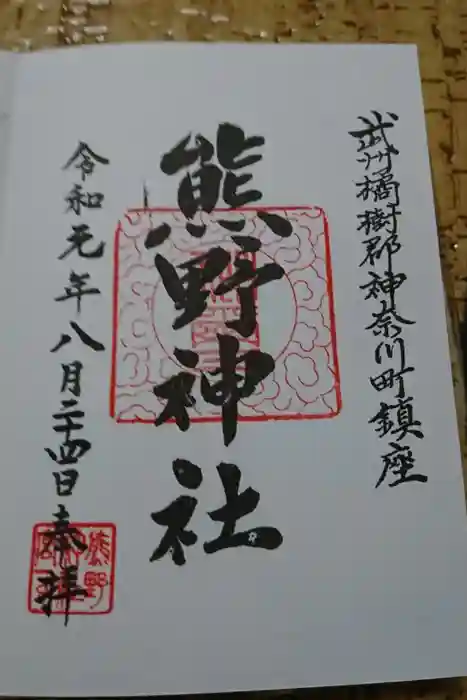 武州橘樹郡神奈川町鎮座
熊野神社
令和元年八月二十四日奉拝
熊野